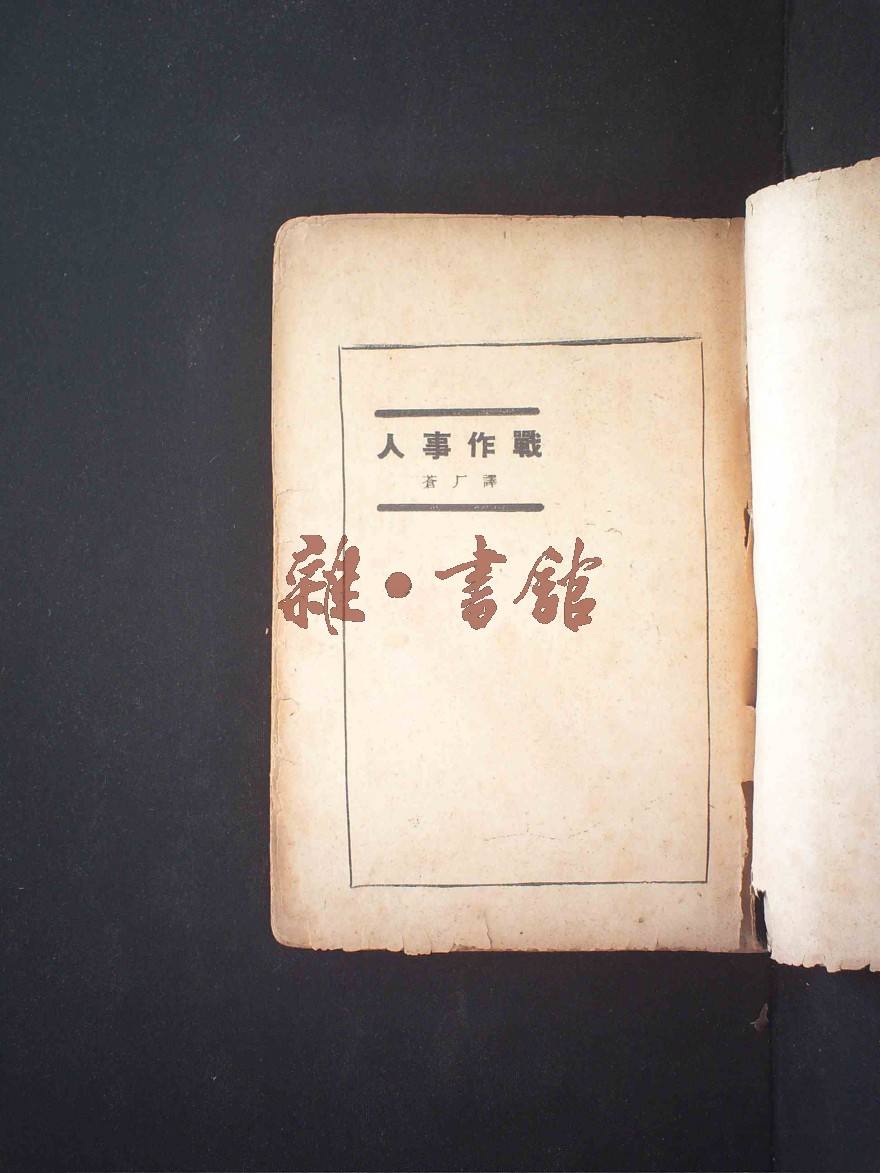 人事作戰
蒼厂譯
雜•書館